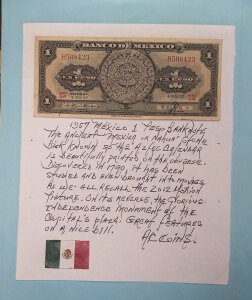 BANCO DE MEXICO
H508423 H508423
1 UN PESO UN PESO 1
1957 MEXICO 1 PESO BANKNOTE
THE ANCIENT MEXICO IN NATURE STONE
ALSO KNOWN AS THE AZTEC CALENDAR
IS BEAUTIFULLY PRINTED ON THE OBVERSE.
DISCOVERED IN 1790, IT HAS BEEN
STUDIED AND EVEN BROUGHT INTO MOVIES
AS WE ALL RECALL THE 2012 MOTION
PICTURE. ON ITS REVERSE, THE GLORIOUS
INDEPENDENCE MONUMENT OF THE
CAPITAL'S PLAZA! GREAT FEATURES
ON A NICE BILL.
COINS.